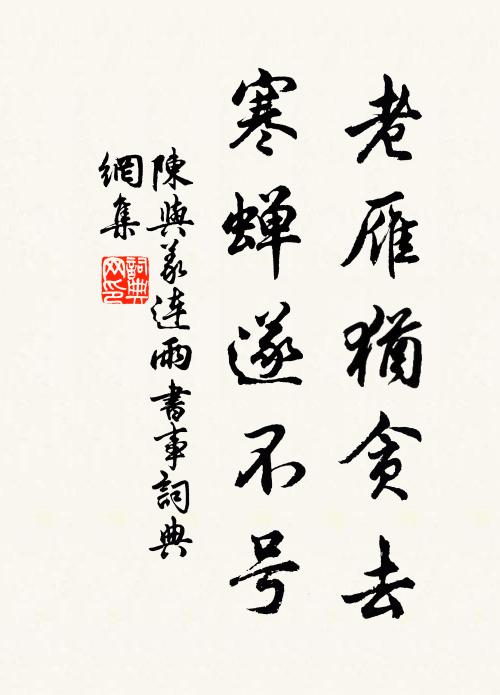 老雁猶貪去
寒蝉遂不号
陳與義連雨書事詞典
網集
詞典網印